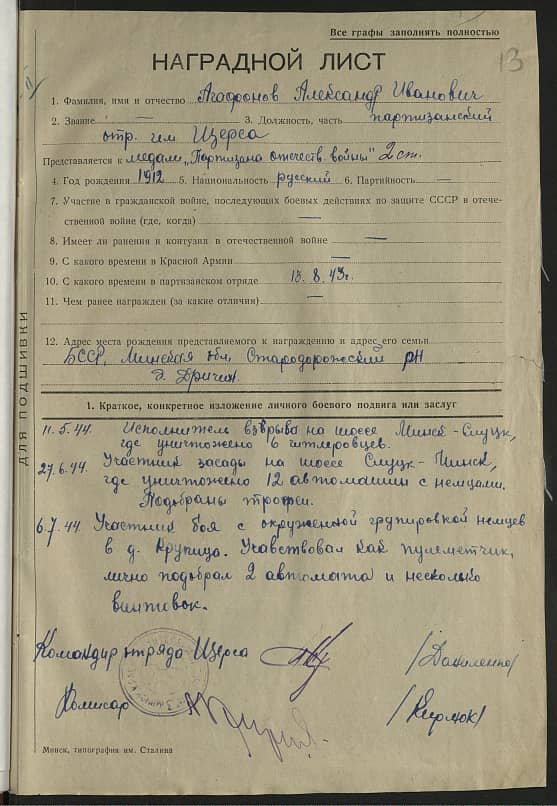 Все графы заполнять полностью
13
НАГРАДНОЙ ЛИСТ
1. Фамилия, имя и отчество Агафонов Александр Иванович
2. Звание — 3. Должность, часть партизанский
отр. им Щерса
Представляется к медали „Партизана отечеств. войны" 2 ст.
4. Год рождения 1912 5. Национальность русский 6. Партийность —
7. Участие в гражданской войне, последующих боевых действиях по защите СССР и отече-
ственной войне (где, когда) —
8. Имеет ли ранения и контузии в отечественной войне —
9. С какого времени в Красной Армии —
10. С какого времени в партизанском отряде 15.8.43г.
11. Чем ранее награжден (за какие отличия) —
12. Адрес места рождения представляемого к награждению и адрес его семьи
БССР, Минская обл, Стародорожский рн
д. Дричин
1. Краткое, конкретное изложение личного боевого подвига или заслуг
11.5.44. Исполнитель взврыва на шоссе Минск-Слуцк,
где уничтожено 6 гитлеровцев.
27.6.44. Участник засады на шоссе Слуцк-Минск,
где уничтожено 12 автомашин с немцами.
Подобраны трофеи.
6.7.44 Участник боя с окруженной групировкой немцев
в д. Крупица. Учавствовал как пулеметчик,
лично подобрал 2 автомата и несколько
винтовок.
Командир отряда Щерса /Даниленко/
Комисар /Кирлюк/
Минск, типография им. Сталина
ДЛЯ ПОДШИВКИ